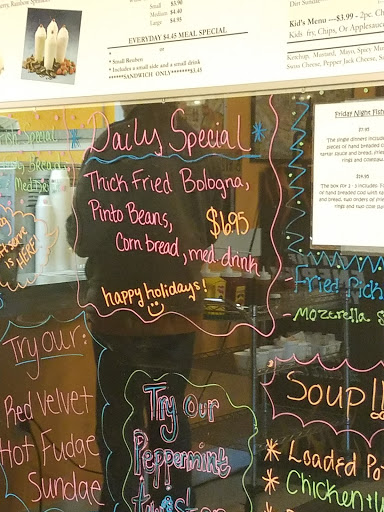 Small $3.90
Medium $4.40
Large $4.95
EVERYDAY $4.45 MEAL SPECIAL
or
* Small Reuben
* Includes a small side and a small drink
******SANDWICH ONLY*******$3.45
Kid's Menu ---$3.99 - 2pc. Ch
Kids fry, Chips, Or Applesauce
Ketchup, Mustard, Mayo, Spicy Mus
Swiss Cheese, Pepper Jack Cheese, S
Friday Night Fish
$7.95
The single dinner includes
pieces of hand breaded cod
tartar sauce and bread, fries
rings and coleslaw
$14.95
The box for 2 - 3 includes: 5
of hand breaded cod with ta
and bread, two orders of fries
rings and two cole slaw
Special
Daily Special
Thick Fried Bologna,
Pinto Beans,
Corn bread, med. drink
$6.95
happy holidays!
is HERE!
Try our:
Red Velvet
Hot Fudge
Sundae
Try our
Peppermint
- Fried Pick
- Mozerella S
Soup!!
* Loaded Po
* Chicken